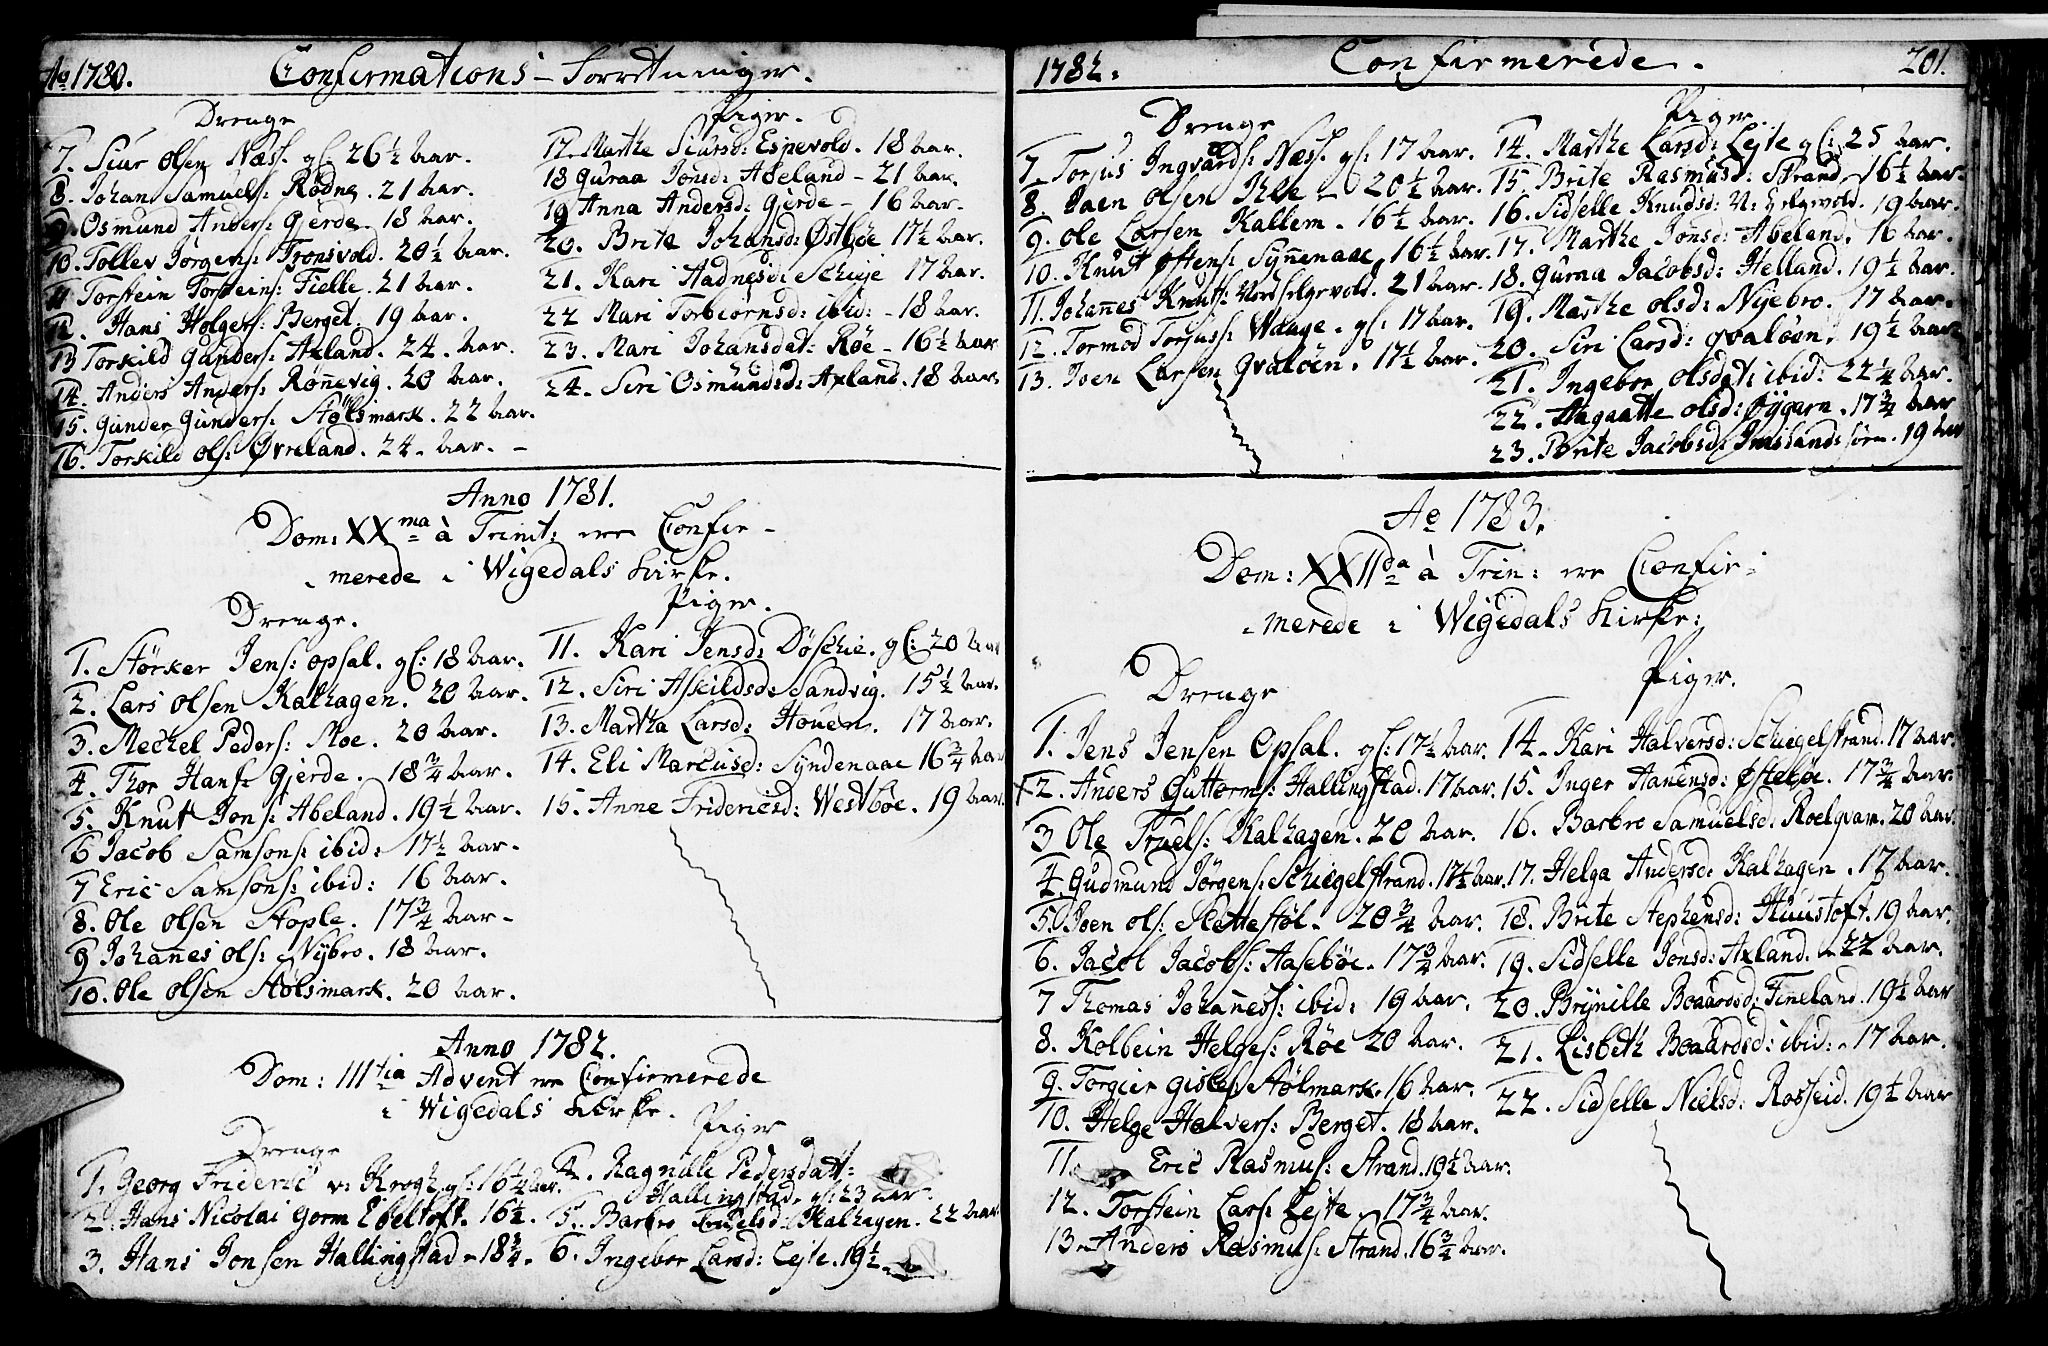 Ao 1780. Confirmations-Forretninger.
Drenge
7. Siur Olsen Næss. gl: 26½ Aar.
8. Johan Samuels: Rødne. 21 Aar.
9. Osmund Anders: Gierde. 18 Aar.
10. Tollev Jørgens: Fronsvold. 20½ Aar.
11. Torstein Torsteins: Fielle. 21 Aar.
12. Hans Holgers: Berget. 19 Aar.
13 Torkild Gunders: Axland. 24. Aar.
14. Anders Anders: Rønnevig. 20 Aar.
15. Gunder Gunders: Stølsmark. 22 Aar.
16. Torkild Ols: Øvreland. 24. Aar.
Piger.
17. Marthe Siursd: Espevold. 18 Aar.
18 Guraa Jonsd: Abeland - 21 Aar.
19 Anna Andersd: Gierde - 16 Aar.
20. Brita Johansd: Østbøe 17½ Aar.
21. Kari Aadnesd: Schieje 17 Aar.
22 Mari Torbiørnsd: ibid: - 18 Aar.
23. Mari Johansdat: Røe - 16½ Aar
24. Siri Osmundsd: Axland. 18 Aar.
Anno 1781.
Dom: XXma à Trinit: ere Confir-
merede i Wigedals Kirke.
Drenge.
1. Størker Jens: Opsal. gl: 18 Aar.
2. Lars Olsen Kalhagen. 20 Aar.
3. Meckel Peders: Moe. 20 Aar.
4. Thor Hans: Gierde. 18¾ Aar.
5. Knut Jons: Abeland. 19½ Aar.
6 Jacob Samsons: ibid: 17½ Aar.
7 Eric Samsons: ibid: 16 Aar.
8. Ole Olsen Stople. 17¾ Aar.
9 Johanes Ols: Nybro. 18 Aar.
10. Ole Olsen Stølsmark. 20 Aar.
Piger.
11. Kari Jensd: Døschie. gl: 20 Aar
12. Siri Askildsd: Sandvig. 15½ Aar.
13. Martha Larsd: Houen. 17 Aar.
14. Eli Marcusd: Syndenaae 16¾ Aar
15. Anne Fridericsd: Westbøe. 19 Aar.
Anno 1782.
Dom: IIItia Advent ere Confirmerede
i Wigedals Kirke.
Drenge
1. Georg Frideric v: Krogh gl: 16¼ Aar.
2. Hans Nicolai Gorm Ebeltoft. 16½.
3. Hans Jonsen Hallingstad - 18¾.
Piger
4. Ragnille Pedersdatt:
Hallingstad. gl: 23 Aar.
5. Barbro Truelsd: Kalhagen. 22 Aar
6. Ingebor Larsd: Lejte. 19½
1782. Confirmerede. 201.
Drenge
7. Torjus Ingvards: Næss. gl: 17 Aar.
8. Joen Olsen - 20½ Aar.
9. Ole Larsen Kallem. 16½ Aar.
10. Knut Østens: Synnenaae 16½ Aar.
11. Johannes Knuts: 21 Aar.
12. Tormod Torjuss: Waage. gl: 17 Aar.
13. Joen Larsen Qvaløen. 17½ Aar.
Piger.
14. Marthe Larsd: Lejte gl: 25 Aar.
15. Brite Rasmusd: Strand. 16½ Aar.
16. Sidselle Knudsd: 19 Aar.
17. Marthe Jonsd: Abeland. 16 Aar.
18. Guraa Jacobsd: Helland. 19½ Aar.
19. Marthe Olsd: Nyebro. 17 Aar.
20. Siri Larsd: Qvaløen. 19½ Aar
21. Ingebor Olsdat: ibid: 22¼ Aar.
22. Aagaatte Olsd: Øygarn. 17¾ Aar
23. Brite Jacobsd: Imsland: 19 Aar
Ao 1783.
Dom: XXIIda à Trin: ere Confir-
merede i Wigedals Kirke:
Drenge
1. Jens Jensen Opsal. gl: 17½ Aar.
2. Anders Guttorms: Hallingstad. 17 Aar.
3 Ole Truels: Kalhagen. 20 Aar.
4. Gudmund Jørgens: Schiegelstrand. 17½ Aar.
5. Joen Ols: Slettestøl. 20¾ Aar.
6. Jacob Jacobs: Aasebøe. 17¾ Aar.
7 Thomas Johaness: ibid: 19 Aar.
8. Kolbein Helges: Røe 20 Aar.
9. Torgier Gisles: Stølmark. 16 Aar.
10. Helge Halvers: Berget. 18 Aar.
11. Eric Rasmus: Strand. 19½ Aar.
12. Torstein Lars: Lejte. 17¾ Aar.
13. Anders Rasmus: Strand. 16¾ Aar.
Piger.
14. Kari Halversd: Schiegelstrand. 17 Aar.
15. Inger Hanensd: Østebøe. 17¾ Aar.
16. Barbro Samuelsd: Roelqvam. 20 Aar.
17. Helga Andersd: Kalhagen. 17 Aar.
18. Brite Stephensd: Huustoft. 19 Aar.
19. Sidselle Jonsd: Axland. 22 Aar.
20. Brynille Boaardsd: Fineland. 19½ Aar
21. Lisbeth Boaardsd: ibid: 17 Aar.
22. Sidselle Nielsd: Rosseid. 19½ Aar